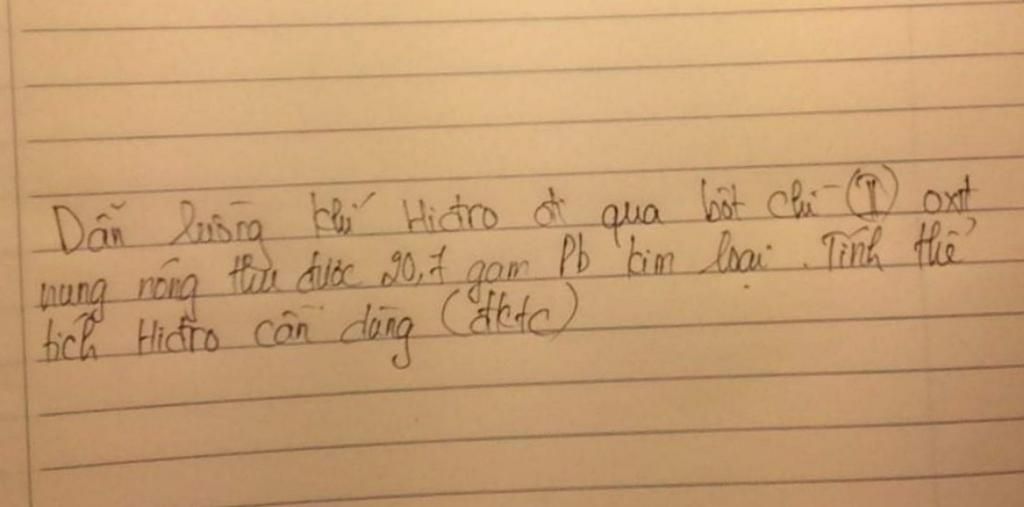 Dẫn luồng khí Hiđro đi qua bột chì (II) oxit
nung nóng thu được 20,7 gam Pb kim loại. Tính thể
tích Hiđro cần dùng (đktc)